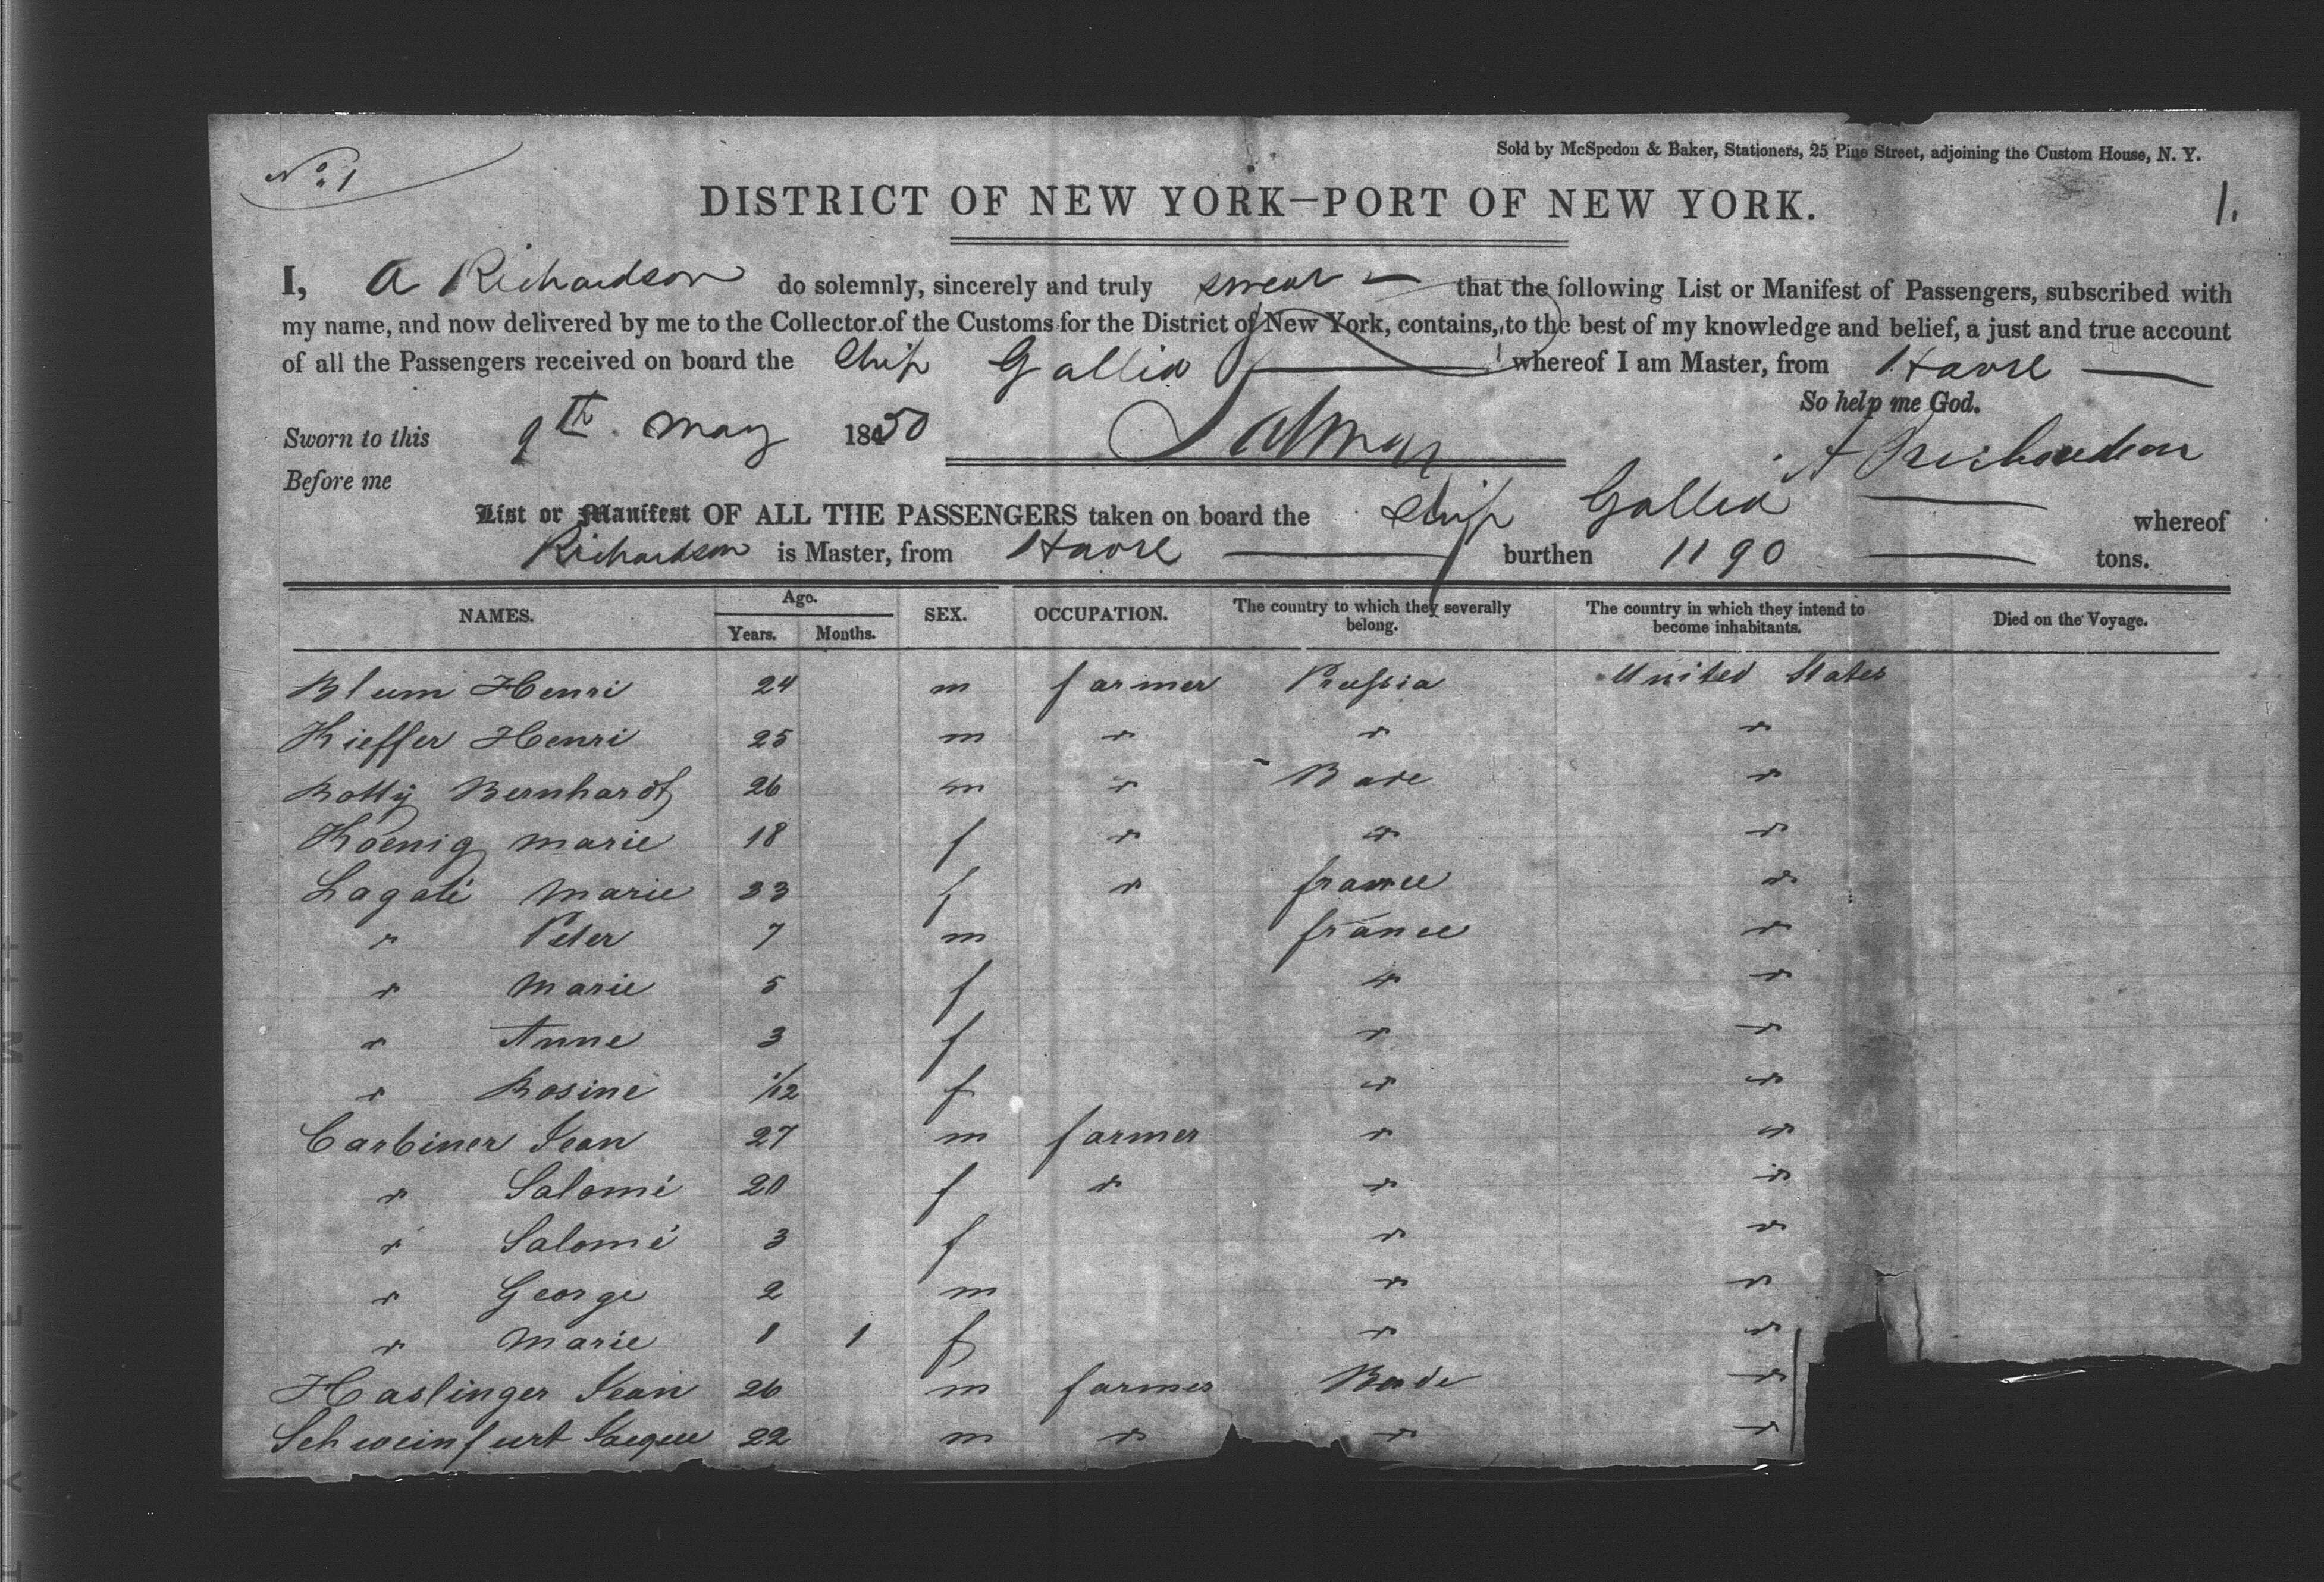 No. 1
Sold by McSpedon & Baker, Stationers, 25 Pine Street, adjoining the Custom House, N. Y.
1.
DISTRICT OF NEW YORK—PORT OF NEW YORK.
I, A Richardson do solemnly, sincerely and truly swear that the following List or Manifest of Passengers, subscribed with
my name, and now delivered by me to the Collector of the Customs for the District of New York, contains, to the best of my knowledge and belief, a just and true account
of all the Passengers received on board the Ship Gallia whereof I am Master, from Havre
So help me God.
Sworn to this 9th. May 1850
A Richardson
Before me
List or Manifest OF ALL THE PASSENGERS taken on board the Ship Gallia whereof
Richardson is Master, from Havre burthen 1190 tons.
NAMES. Age. Years. Months. SEX. OCCUPATION. The country to which they severally belong. The country in which they intend to become inhabitants. Died on the Voyage.
Blum Henri 24 m farmer Prussia United States
Kieffer Henri 25 m " " "
Botty Bernhardt 26 m " Bade "
Koenig marie 18 f " " "
Lagali Marie 33 f " france "
" Peter 7 m france "
" Marie 5 f " "
" Anne 3 f " "
" Rosine 1/12 f " "
Carbiner Jean 27 m farmer " "
" Salomé 20 f " " "
" Salomé 3 f " "
" George 2 m " "
" Marie 1 1 f " "
Haslinger Jean 26 m farmer Bade "
Schweinfurt Jaque 22 m " " "